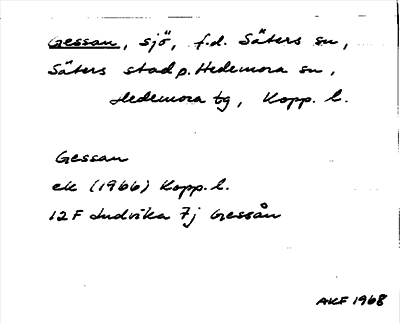 Gessan, sjö, f.d. Säters sn,
Säters stad o. Hedemora sn,
Hedemora tg, Kopp. l.
Gessan
ek (1966) Kopp. l.
12F Ludvika 7j Gessån
AKF 1968